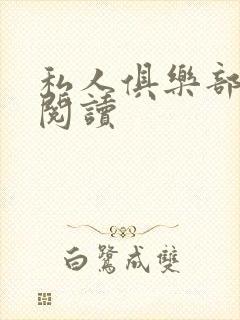 私人俱樂部
閱讀
白鷺成雙